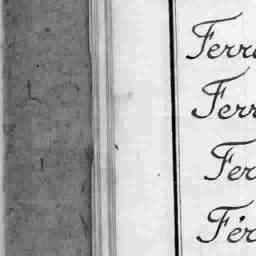 Ferr
Ferr
Fer
Fér